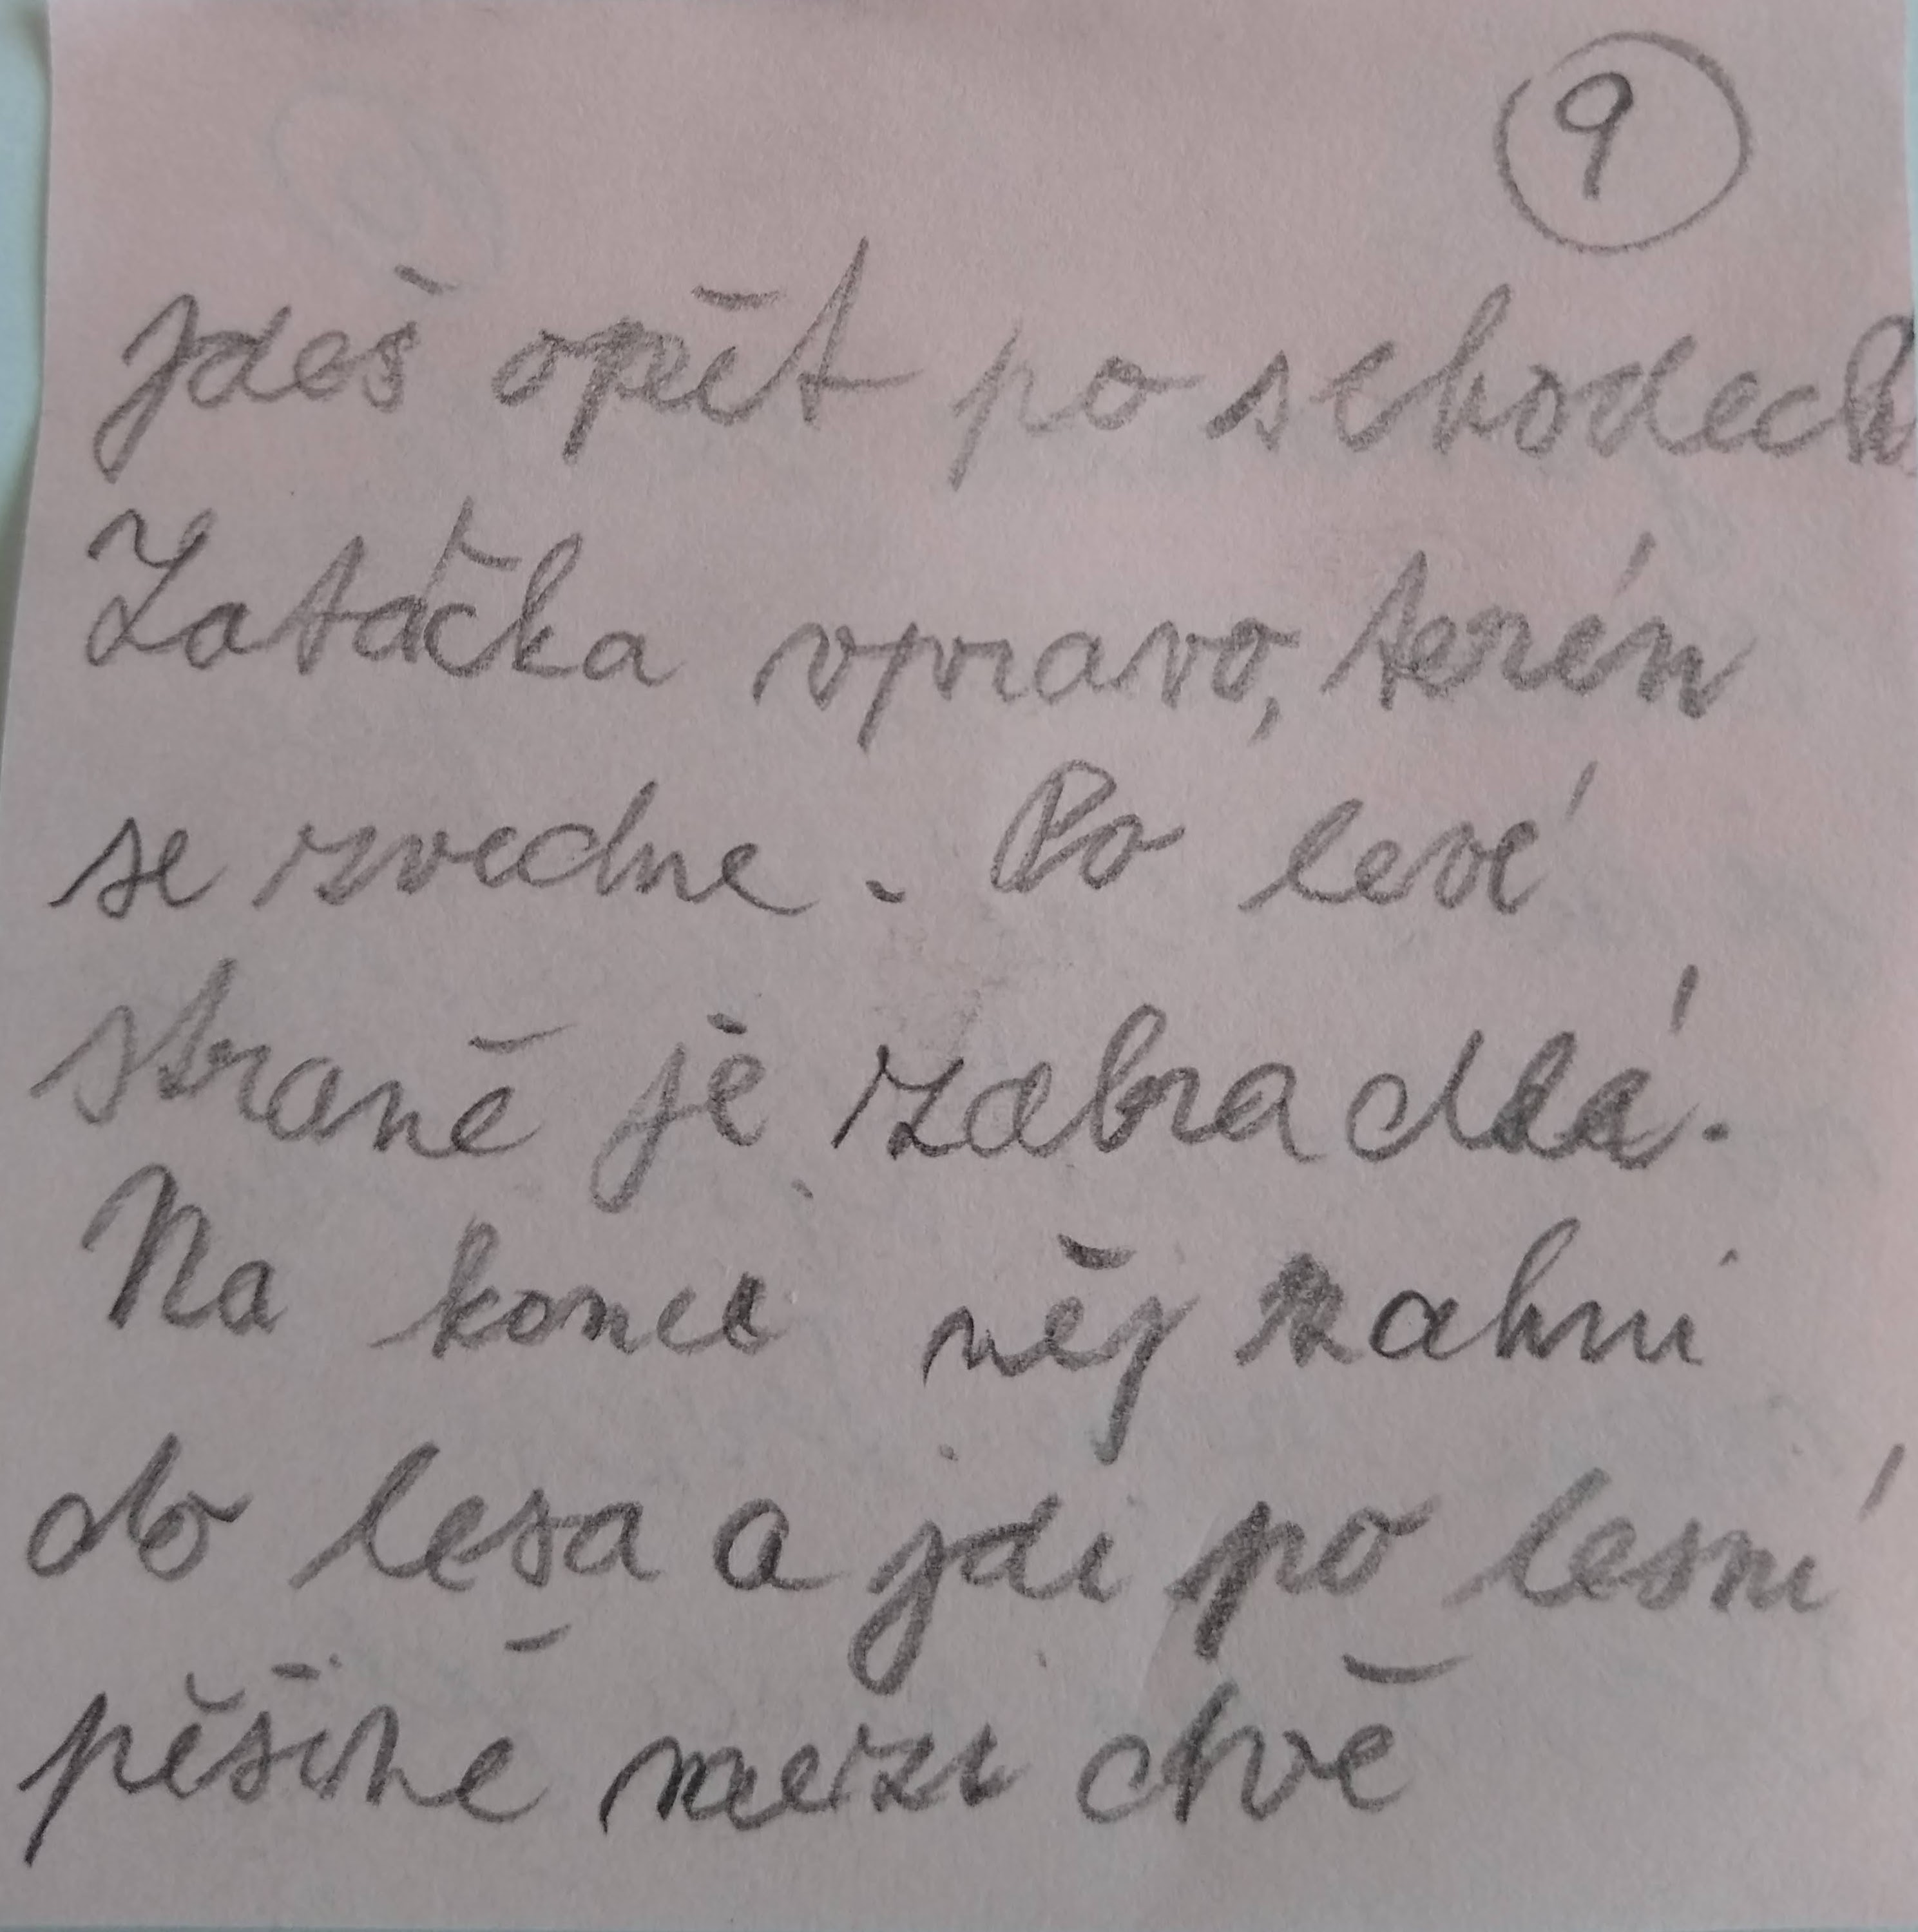 9
Jdeš opět po schodech
Zatáčka vpravo, terén
se zvedne. Po levé
straně je zábradlá.
Na konci něj zahni
do lesa a jdi po lesní
pěšině mezi dvě